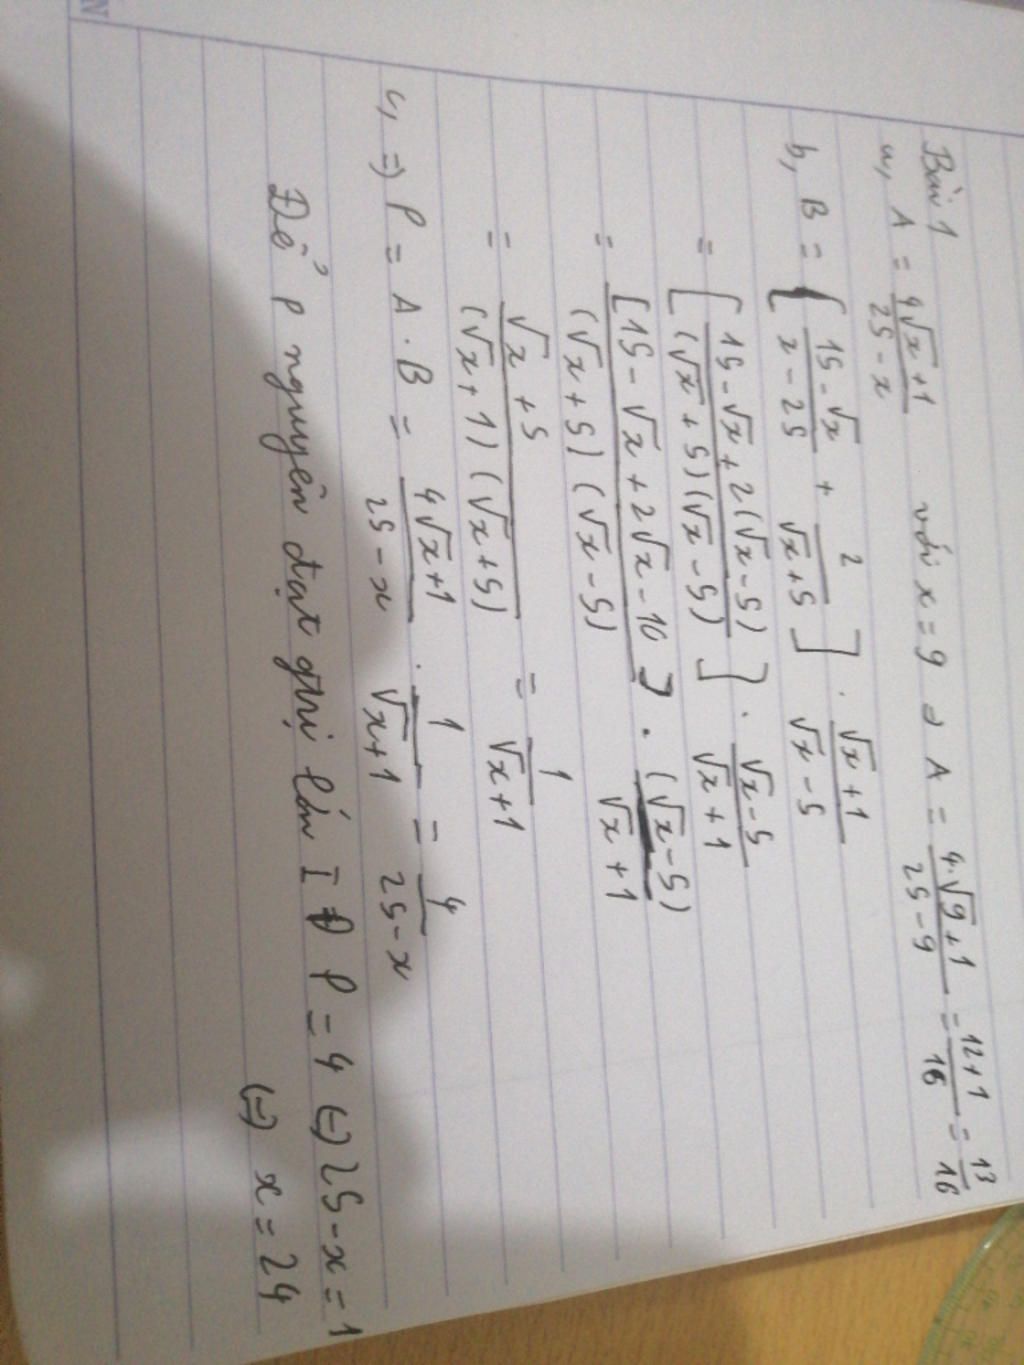 Bài 1
a, A = \frac{4\sqrt{x}+1}{25-x} với x = 9 ⇒ A = \frac{4.\sqrt{9}+1}{25-9} = \frac{12+1}{16} = \frac{13}{16}
b, B = [\frac{15-\sqrt{x}}{x-25} + \frac{2}{\sqrt{x}+5}] . \frac{\sqrt{x}+1}{\sqrt{x}-5}
= [\frac{15-\sqrt{x}+2(\sqrt{x}-5)}{(\sqrt{x}+5)(\sqrt{x}-5)}] . \frac{\sqrt{x}-5}{\sqrt{x}+1}
= \frac{[15-\sqrt{x}+2\sqrt{x}-10]}{(\sqrt{x}+5)(\sqrt{x}-5)} . \frac{(\sqrt{x}-5)}{\sqrt{x}+1}
= \frac{\sqrt{x}+5}{(\sqrt{x}+1)(\sqrt{x}+5)} = \frac{1}{\sqrt{x}+1}
c, ⇒ P = A . B = \frac{4\sqrt{x}+1}{25-x} . \frac{1}{\sqrt{x}+1} = \frac{4}{25-x}
Để P nguyên đạt giá trị lớn I P = 4 (=) 25-x = 1
(=) x = 24